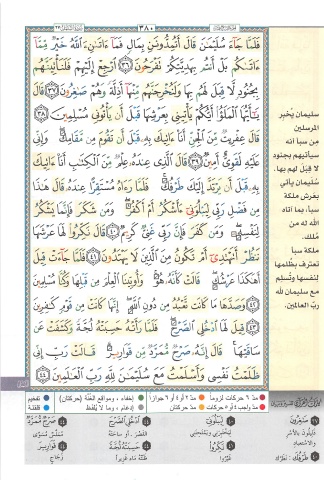 ٣٨٠
فَلَمَّا جَآءَ سُلَيْمَٰنَ قَالَ أَتُمِدُّونَنِ بِمَالٍ فَمَآ ءَاتَىٰنِۦَ ٱللَّهُ خَيْرٌ مِّمَّآ
ءَاتَىٰكُم بَلْ أَنتُم بِهَدِيَّتِكُمْ تَفْرَحُونَ ٣٦ ٱرْجِعْ إِلَيْهِمْ فَلَنَأْتِيَنَّهُم
بِجُنُودٍ لَّا قِبَلَ لَهُم بِهَا وَلَنُخْرِجَنَّهُم مِّنْهَآ أَذِلَّةً وَهُمْ صَٰغِرُونَ ٣٧ قَالَ
يَٰٓأَيُّهَا ٱلْمَلَؤُا۟ أَيُّكُمْ يَأْتِينِى بِعَرْشِهَا قَبْلَ أَن يَأْتُونِى مُسْلِمِينَ ٣٨
قَالَ عِفْرِيتٌ مِّنَ ٱلْجِنِّ أَنَا۠ ءَاتِيكَ بِهِۦ قَبْلَ أَن تَقُومَ مِن مَّقَامِكَ وَإِنِّى
عَلَيْهِ لَقَوِىٌّ أَمِينٌ ٣٩ قَالَ ٱلَّذِى عِندَهُۥ عِلْمٌ مِّنَ ٱلْكِتَٰبِ أَنَا۠ ءَاتِيكَ
بِهِۦ قَبْلَ أَن يَرْتَدَّ إِلَيْكَ طَرْفُكَ فَلَمَّا رَءَاهُ مُسْتَقِرًّا عِندَهُۥ قَالَ هَٰذَا
مِن فَضْلِ رَبِّى لِيَبْلُوَنِىٓ ءَأَشْكُرُ أَمْ أَكْفُرُ وَمَن شَكَرَ فَإِنَّمَا يَشْكُرُ
لِنَفْسِهِۦ وَمَن كَفَرَ فَإِنَّ رَبِّى غَنِىٌّ كَرِيمٌ ٤٠ قَالَ نَكِّرُوا۟ لَهَا عَرْشَهَا
نَنظُرْ أَتَهْتَدِىٓ أَمْ تَكُونُ مِنَ ٱلَّذِينَ لَا يَهْتَدُونَ ٤١ فَلَمَّا جَآءَتْ قِيلَ
أَهَٰكَذَا عَرْشُكِ قَالَتْ كَأَنَّهُۥ هُوَ وَأُوتِينَا ٱلْعِلْمَ مِن قَبْلِهَا وَكُنَّا مُسْلِمِينَ
٤٢ وَصَدَّهَا مَا كَانَت تَّعْبُدُ مِن دُونِ ٱللَّهِ إِنَّهَا كَانَتْ مِن قَوْمٍ كَٰفِرِينَ
٤٣ قِيلَ لَهَا ٱدْخُلِى ٱلصَّرْحَ فَلَمَّا رَأَتْهُ حَسِبَتْهُ لُجَّةً وَكَشَفَتْ عَن
سَاقَيْهَا قَالَ إِنَّهُۥ صَرْحٌ مُّمَرَّدٌ مِّن قَوَارِيرَ قَالَتْ رَبِّ إِنِّى
ظَلَمْتُ نَفْسِى وَأَسْلَمْتُ مَعَ سُلَيْمَٰنَ لِلَّهِ رَبِّ ٱلْعَٰلَمِينَ ٤٤
سليمان يُخبر
المرسلين
من سبأ أنه
سيأتيهم بجنود
لا قِبَل لهم بها.
سُليمان يأتي
بعرش ملكة
سبأ، بما آتاه
الله له من
مُلك.
ملكة سبأ
تعترف بظُلمها
لنفسها وتُسلِم
مع سليمان لله
ربّ العالمين.
مدّ ٦ حركات لزوماً
مدّ ٢ أو ٤ أو ٦ جوازاً
إخفاء، ومواقع الغُنَّة (حركتان)
تفخيم
مدّ حركتان
إدغام، وما لا يُلفَظ
قلقلة